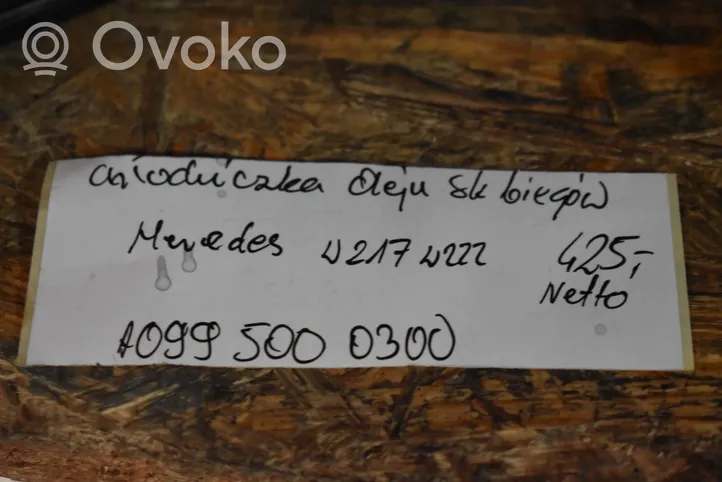 Ovoko
chłodniczka oleju sk biegów
Mercedes W217 W222 425,-
Netto
A099 500 0300